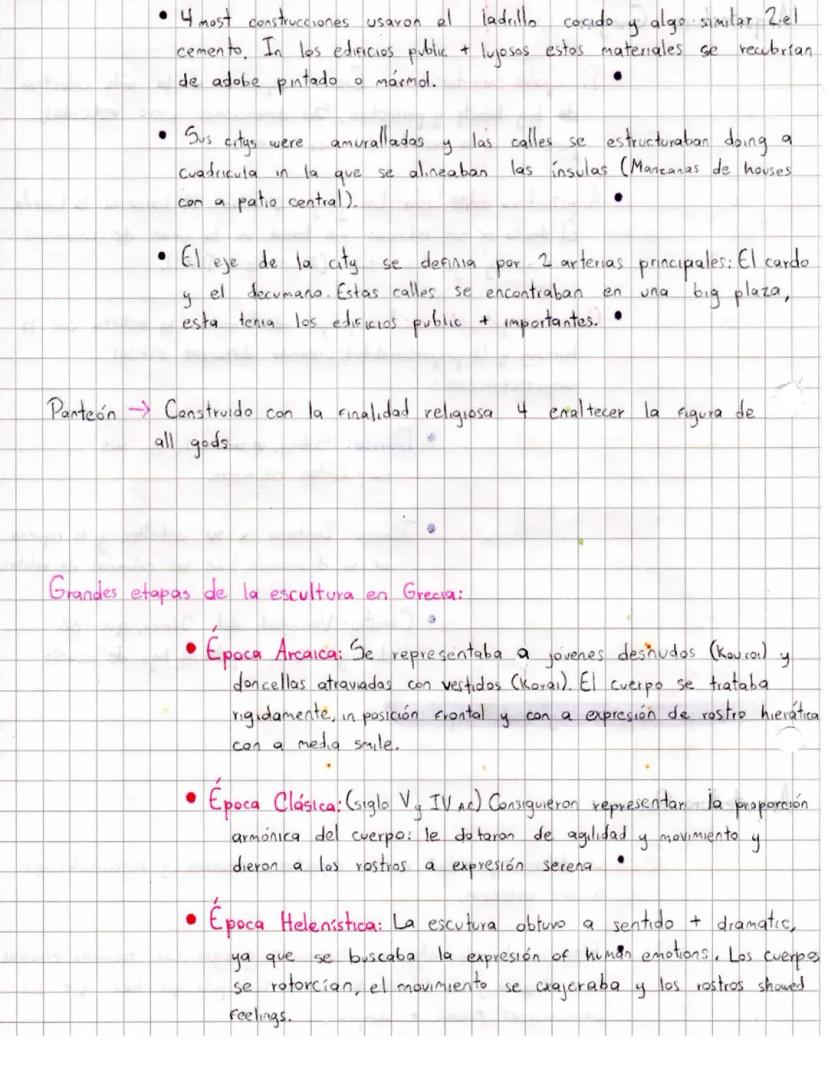 • 4 most construcciones usaron el ladrillo cocido y algo similar 2 el
cemento. In los edificios public + lujosos estos materiales se recubrían
de adobe pintado o mármol.
• Sus citys were amuralladas y las calles se estructuraban doing a
cuadricula in la que se alineaban las ínsulas (Manzanas de houses
con a patio central).
• El eje de la city se definia por 2 arterias principales: El cardo
y el decumano. Estas calles se encontraban en una big plaza,
esta tenia los edificios public + importantes.
Panteón → Construido con la finalidad religiosa 4 enaltecer la figura de
all gods
Grandes etapas de la escultura en Grecia:
• Época Arcaica: Se representaba a jóvenes desnudos (Kouroi) y
doncellas atraviadas con vestidos (Korai). El cuerpo se trataba
rigidamente, in posición frontal y con a expresión de rostro hierática
con a media smile.
• Época Clásica: (siglo V y IV AC) Consiguieron representar la proporción
armónica del cuerpo: le dotaron de agilidad y movimiento y
dieron a los rostros a expresión serena
• Época Helenística: La escutura obtuvo a sentido + dramatic,
ya que se buscaba la expresión of human emotions. Los cuerpos
se rotorcían, el movimiento se exajeraba y los rostros showed
feelings.